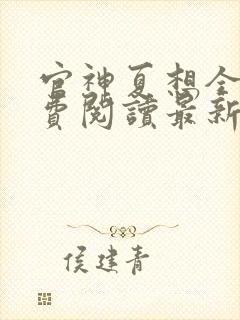 官神夏想全
費閱讀最新
侯建青